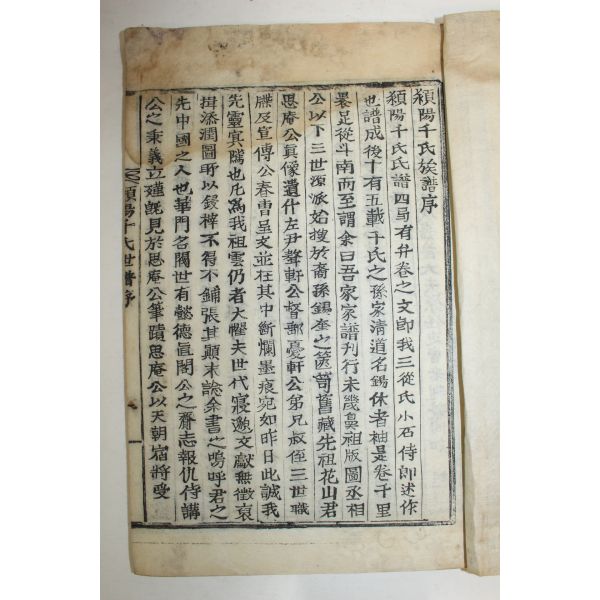 潁陽千氏族譜序
潁陽千氏氏譜四局有弁卷之文卽我三從氏小石侍郞述作
也譜成後十有五載千氏之孫家清道名錫休者袖是卷千里
裹足從斗南而至謂余曰吾家家譜刊行未幾鼻祖版圖丞相
公以下三世源派始搜於裔孫錫奎之篋笥舊藏先祖花山君
思庵公眞像遺什左尹聲軒公督郵憂軒公弟兄叔侄三世職
牒及宣傳公春曹呈文並在其中斷爛墨痕宛如昨日此誠我
先靈冥隲也凡爲我祖雲仍者大懼夫世代寢邈文獻無徵裒
揖添潤圖所以鋟梓不得不鋪張其顚末諗余書之嗚呼君之
先中國之人也華門名閥世有懿德亘閣公之齎志報仇侍講
公之秉義立殣旣見於思庵公筆蹟思庵公以天朝宿將受
潁陽千氏世譜序